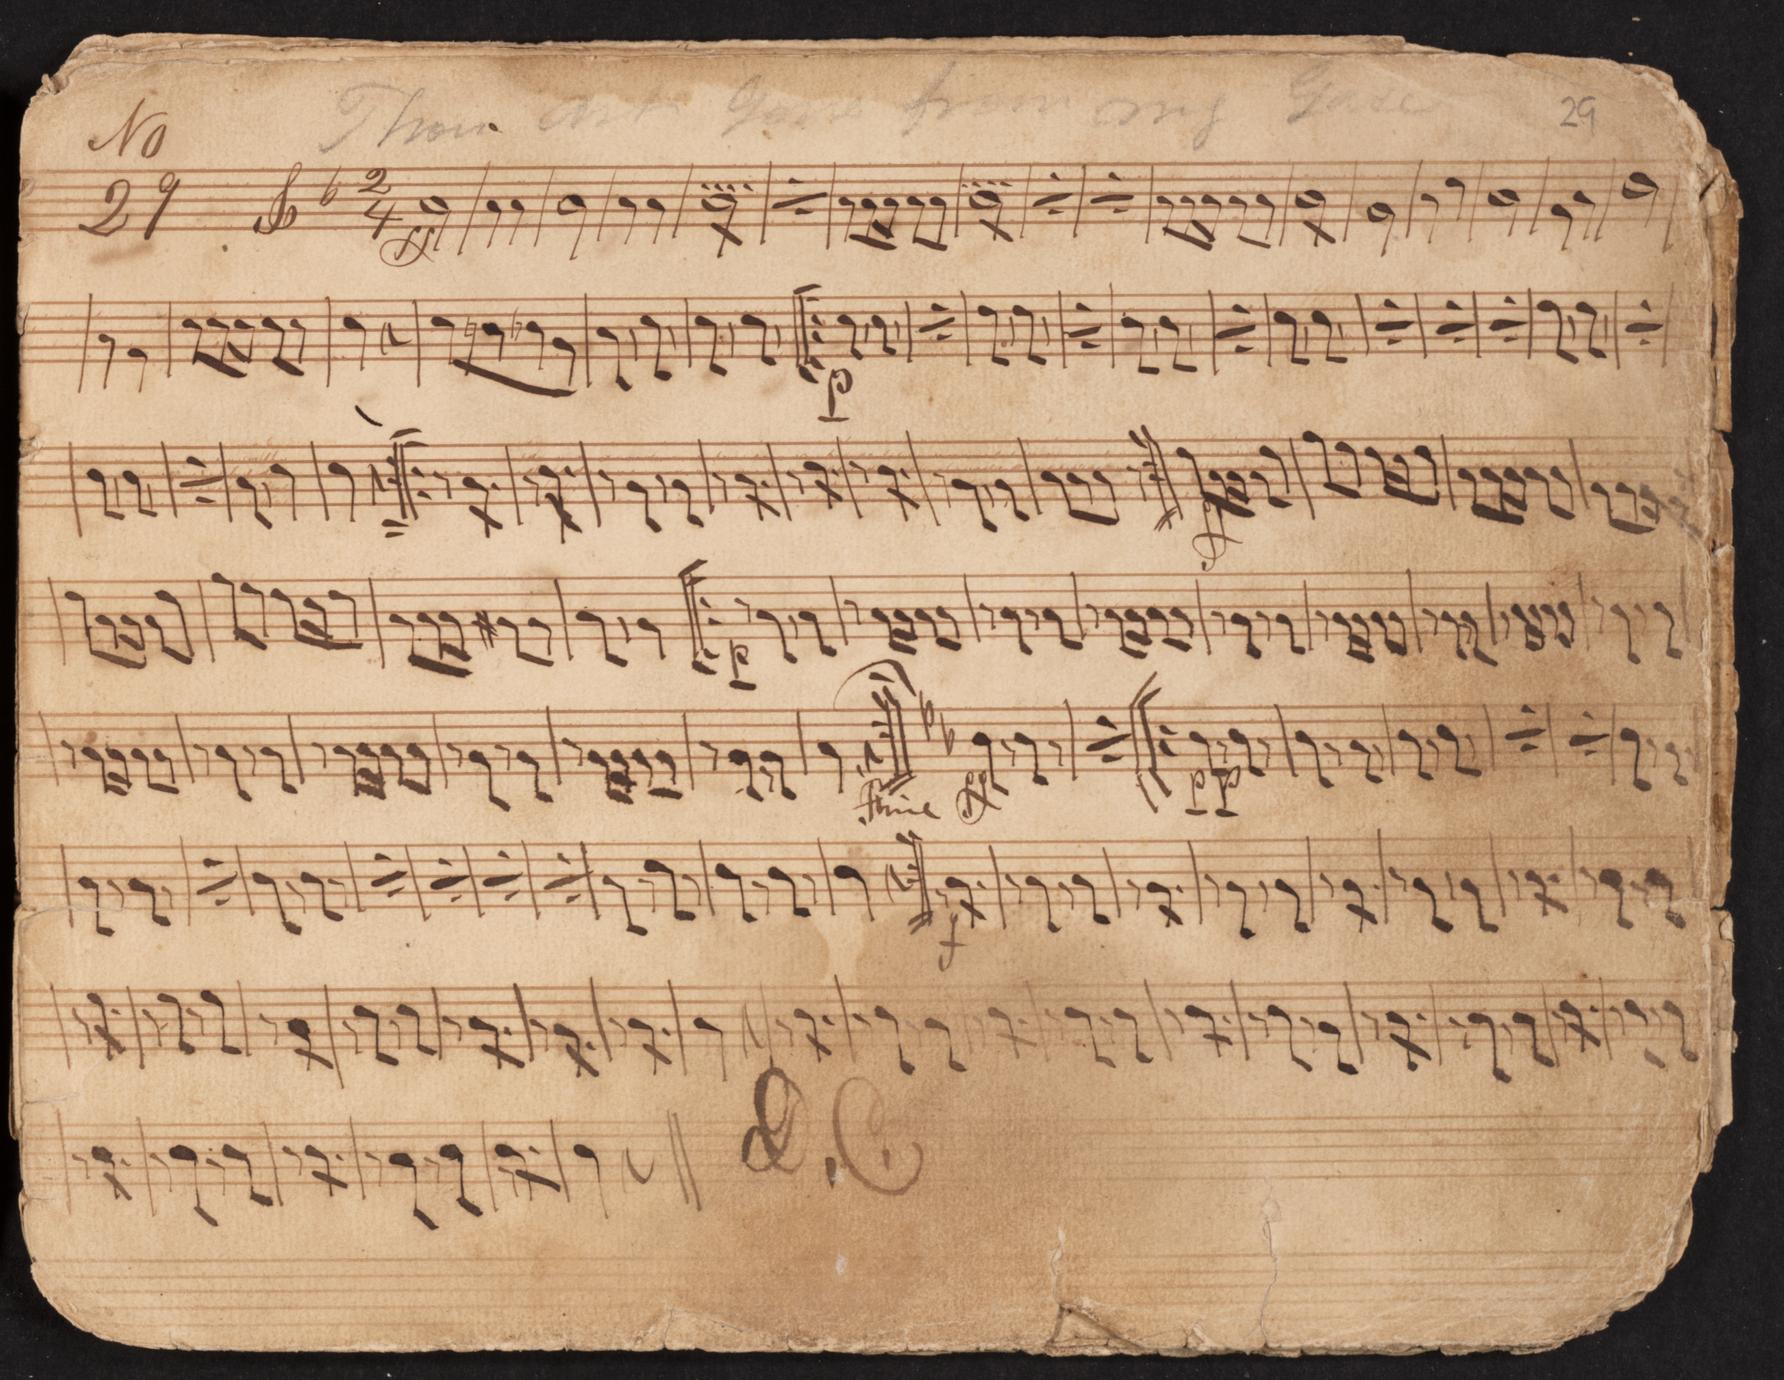 Thou art Gone from my Gaze 29
No
29 2/4
ff
p
f
p
Fine ff pp
f
D.C.